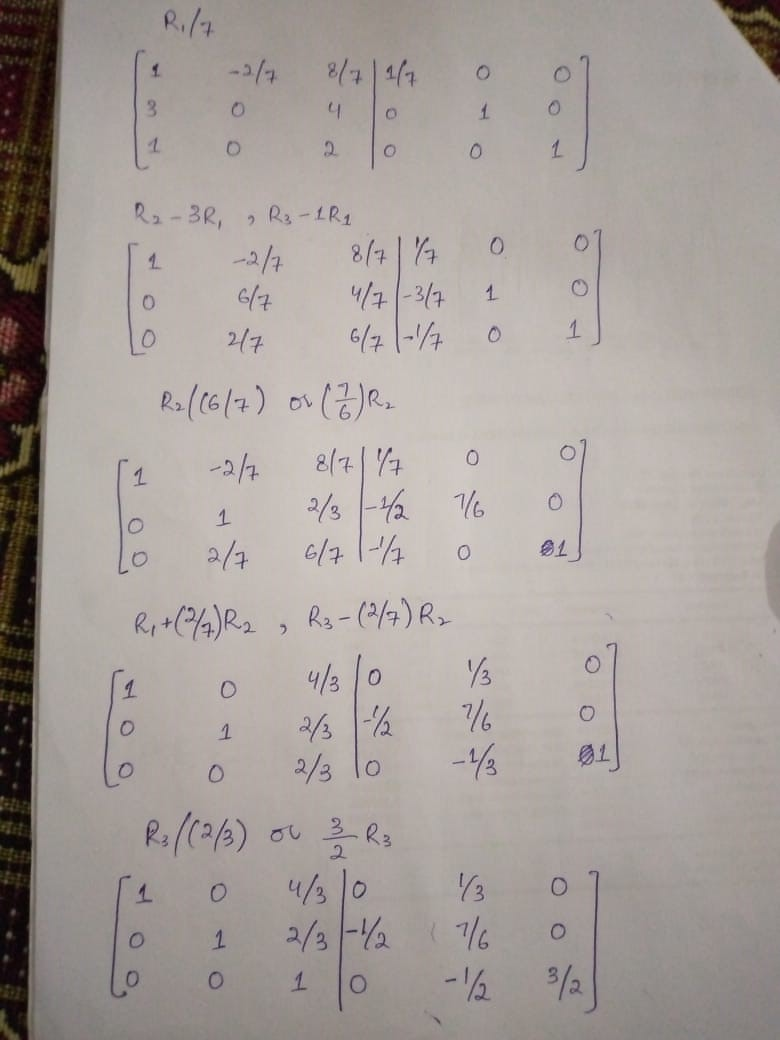 R₁/7
1 -2/7 8/7 | 1/7 0 0
3 0 4 | 0 1 0
1 0 2 | 0 0 1
R₂ - 3R₁ , R₃ - 1R₁
1 -2/7 8/7 | 1/7 0 0
0 6/7 4/7 | -3/7 1 0
0 2/7 6/7 | -1/7 0 1
R₂/(6/7) or (7/6)R₂
1 -2/7 8/7 | 1/7 0 0
0 1 2/3 | -1/2 7/6 0
0 2/7 6/7 | -1/7 0 1
R₁+(2/7)R₂ , R₃-(2/7)R₂
1 0 4/3 | 0 1/3 0
0 1 2/3 | -1/2 7/6 0
0 0 2/3 | 0 -1/3 1
R₃/(2/3) or 3/2 R₃
1 0 4/3 | 0 1/3 0
0 1 2/3 | -1/2 7/6 0
0 0 1 | 0 -1/2 3/2